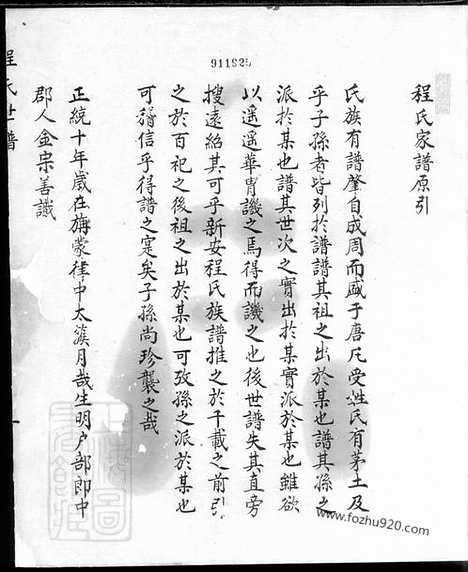 911925
程氏家譜原引
氏族有譜肇自成周而盛于唐凡受姓氏有茅土及
乎子孫者皆列於譜譜其祖之出於某也譜其孫之
派於某也譜其世次之實出於某實派於某也雖欲
以遥遥華胄譏之焉得而譏之也後世譜失其直旁
搜遠紹其可乎新安程氏族譜推之於千載之前引
之於百祀之後祖之出於某也可攷孫之派於某也
可稽信乎得譜之寔矣子孫尚珍襲之哉
正統十年歲在旃蒙律中太簇月哉生明户部郎中
郡人金宗善識
程氏世譜
一
www.fozhu920.com